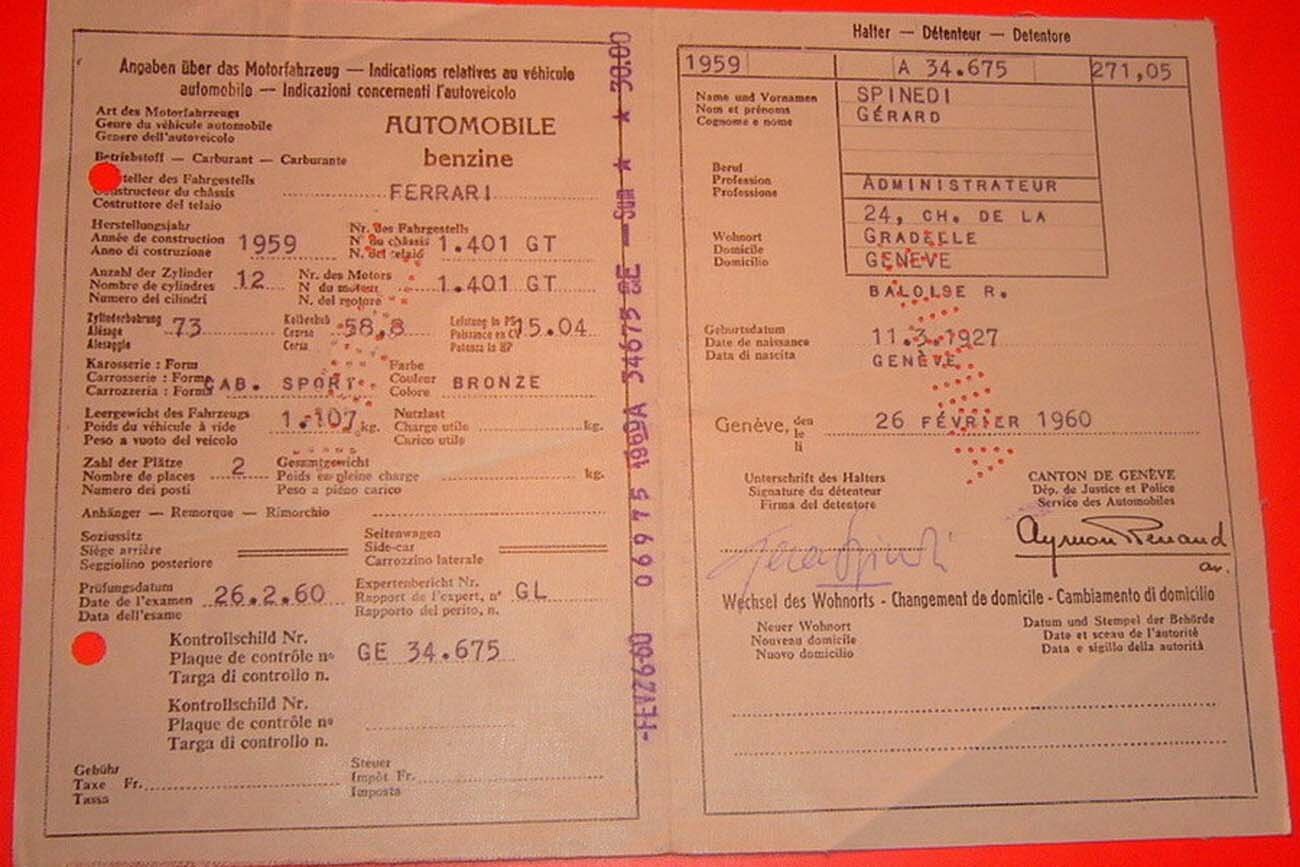 Angaben über das Motorfahrzeug — Indications relatives au véhicule
automobile — Indicazioni concernenti l'autoveicolo
Art des Motorfahrzeugs
Genre du véhicule automobile
Genere dell'autoveicolo
AUTOMOBILE
Betriebstoff — Carburant — Carburante
benzine
steller des Fahrgestells
Constructeur du châssis
Costruttore del telaio
FERRARI
Herstellungsjahr
Année de construction
Anno di costruzione
1959
Nr. des Fahrgestells
N° du châssis
N. del telaio
1.401 GT
Anzahl der Zylinder
Nombre de cylindres
Numero dei cilindri
12
Nr. des Motors
N° du moteur
N. del motore
1.401 GT
Zylinderbohrung
Alésage
Alesaggio
73
Kolbenhub
Course
Corsa
58,8
Leistung in PS
Puissance en CV
Potenza in HP
15.04
Karosserie : Form
Carrosserie : Forme
Carrozzeria : Forma
CAB. SPORT.
Farbe
Couleur
Colore
BRONZE
Leergewicht des Fahrzeugs
Poids du véhicule à vide
Peso a vuoto del veicolo
1.107 kg.
Nutzlast
Charge utile
Carico utile
kg.
Zahl der Plätze
Nombre de places
Numero dei posti
2
Gesamtgewicht
Poids en pleine charge
Peso a pieno carico
kg.
Anhänger — Remorque — Rimorchio
Soziussitz
Siège arrière
Seggiolino posteriore
Seitenwagen
Side-car
Carrozzino laterale
Prüfungsdatum
Date de l'examen
Data dell'esame
26.2.60
Expertenbericht Nr.
Rapport de l'expert, n°
Rapporto del perito, n.
GL
Kontrollschild Nr.
Plaque de contrôle no
Targa di controllo n.
GE 34.675
Kontrollschild Nr.
Plaque de contrôle no
Targa di controllo n.
Gebühr
Taxe Fr.
Tassa
Steuer
Impôt Fr.
Imposta
-FEV2660 06975 1959A 34675 GE — Sum ★ ★ 30.00
Halter — Détenteur — Detentore
1959 A 34.675 271,05
Name und Vornamen
Nom et prénoms
Cognome e nome
SPINEDI
GÉRARD
Beruf
Profession
Professione
ADMINISTRATEUR
Wohnort
Domicile
Domicilio
24, CH. DE LA
GRADELLE
GENÈVE
BALOISE R.
Geburtsdatum
Date de naissance
Data di nascita
11.3.1927
GENÈVE
Genève, den
le
li
26 FÉVRIER 1960
Unterschrift des Halters
Signature du détenteur
Firma del detentore
CANTON DE GENÈVE
Dép. de Justice et Police
Service des Automobiles
Aymon Renaud
Wechsel des Wohnorts - Changement de domicile - Cambiamento di domicilio
Neuer Wohnort
Nouveau domicile
Nuovo domicilio
Datum und Stempel der Behörde
Date et sceau de l'autorité
Data e sigillo della autorità